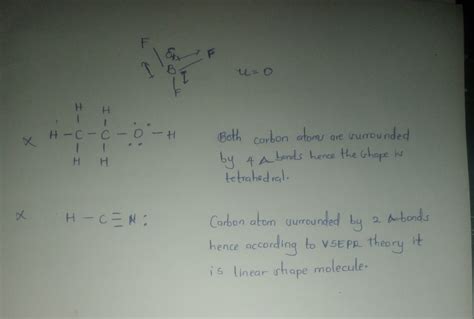 F
F
B
F
u=0
H H
x H-C-C-Ö-H
H H
Both carbon atoms are surrounded
by 4 bonds hence the shape is
tetrahedral.
x H-C≡N:
Carbon atom surrounded by 2 bonds
hence according to VSEPR theory it
is linear shape molecule.